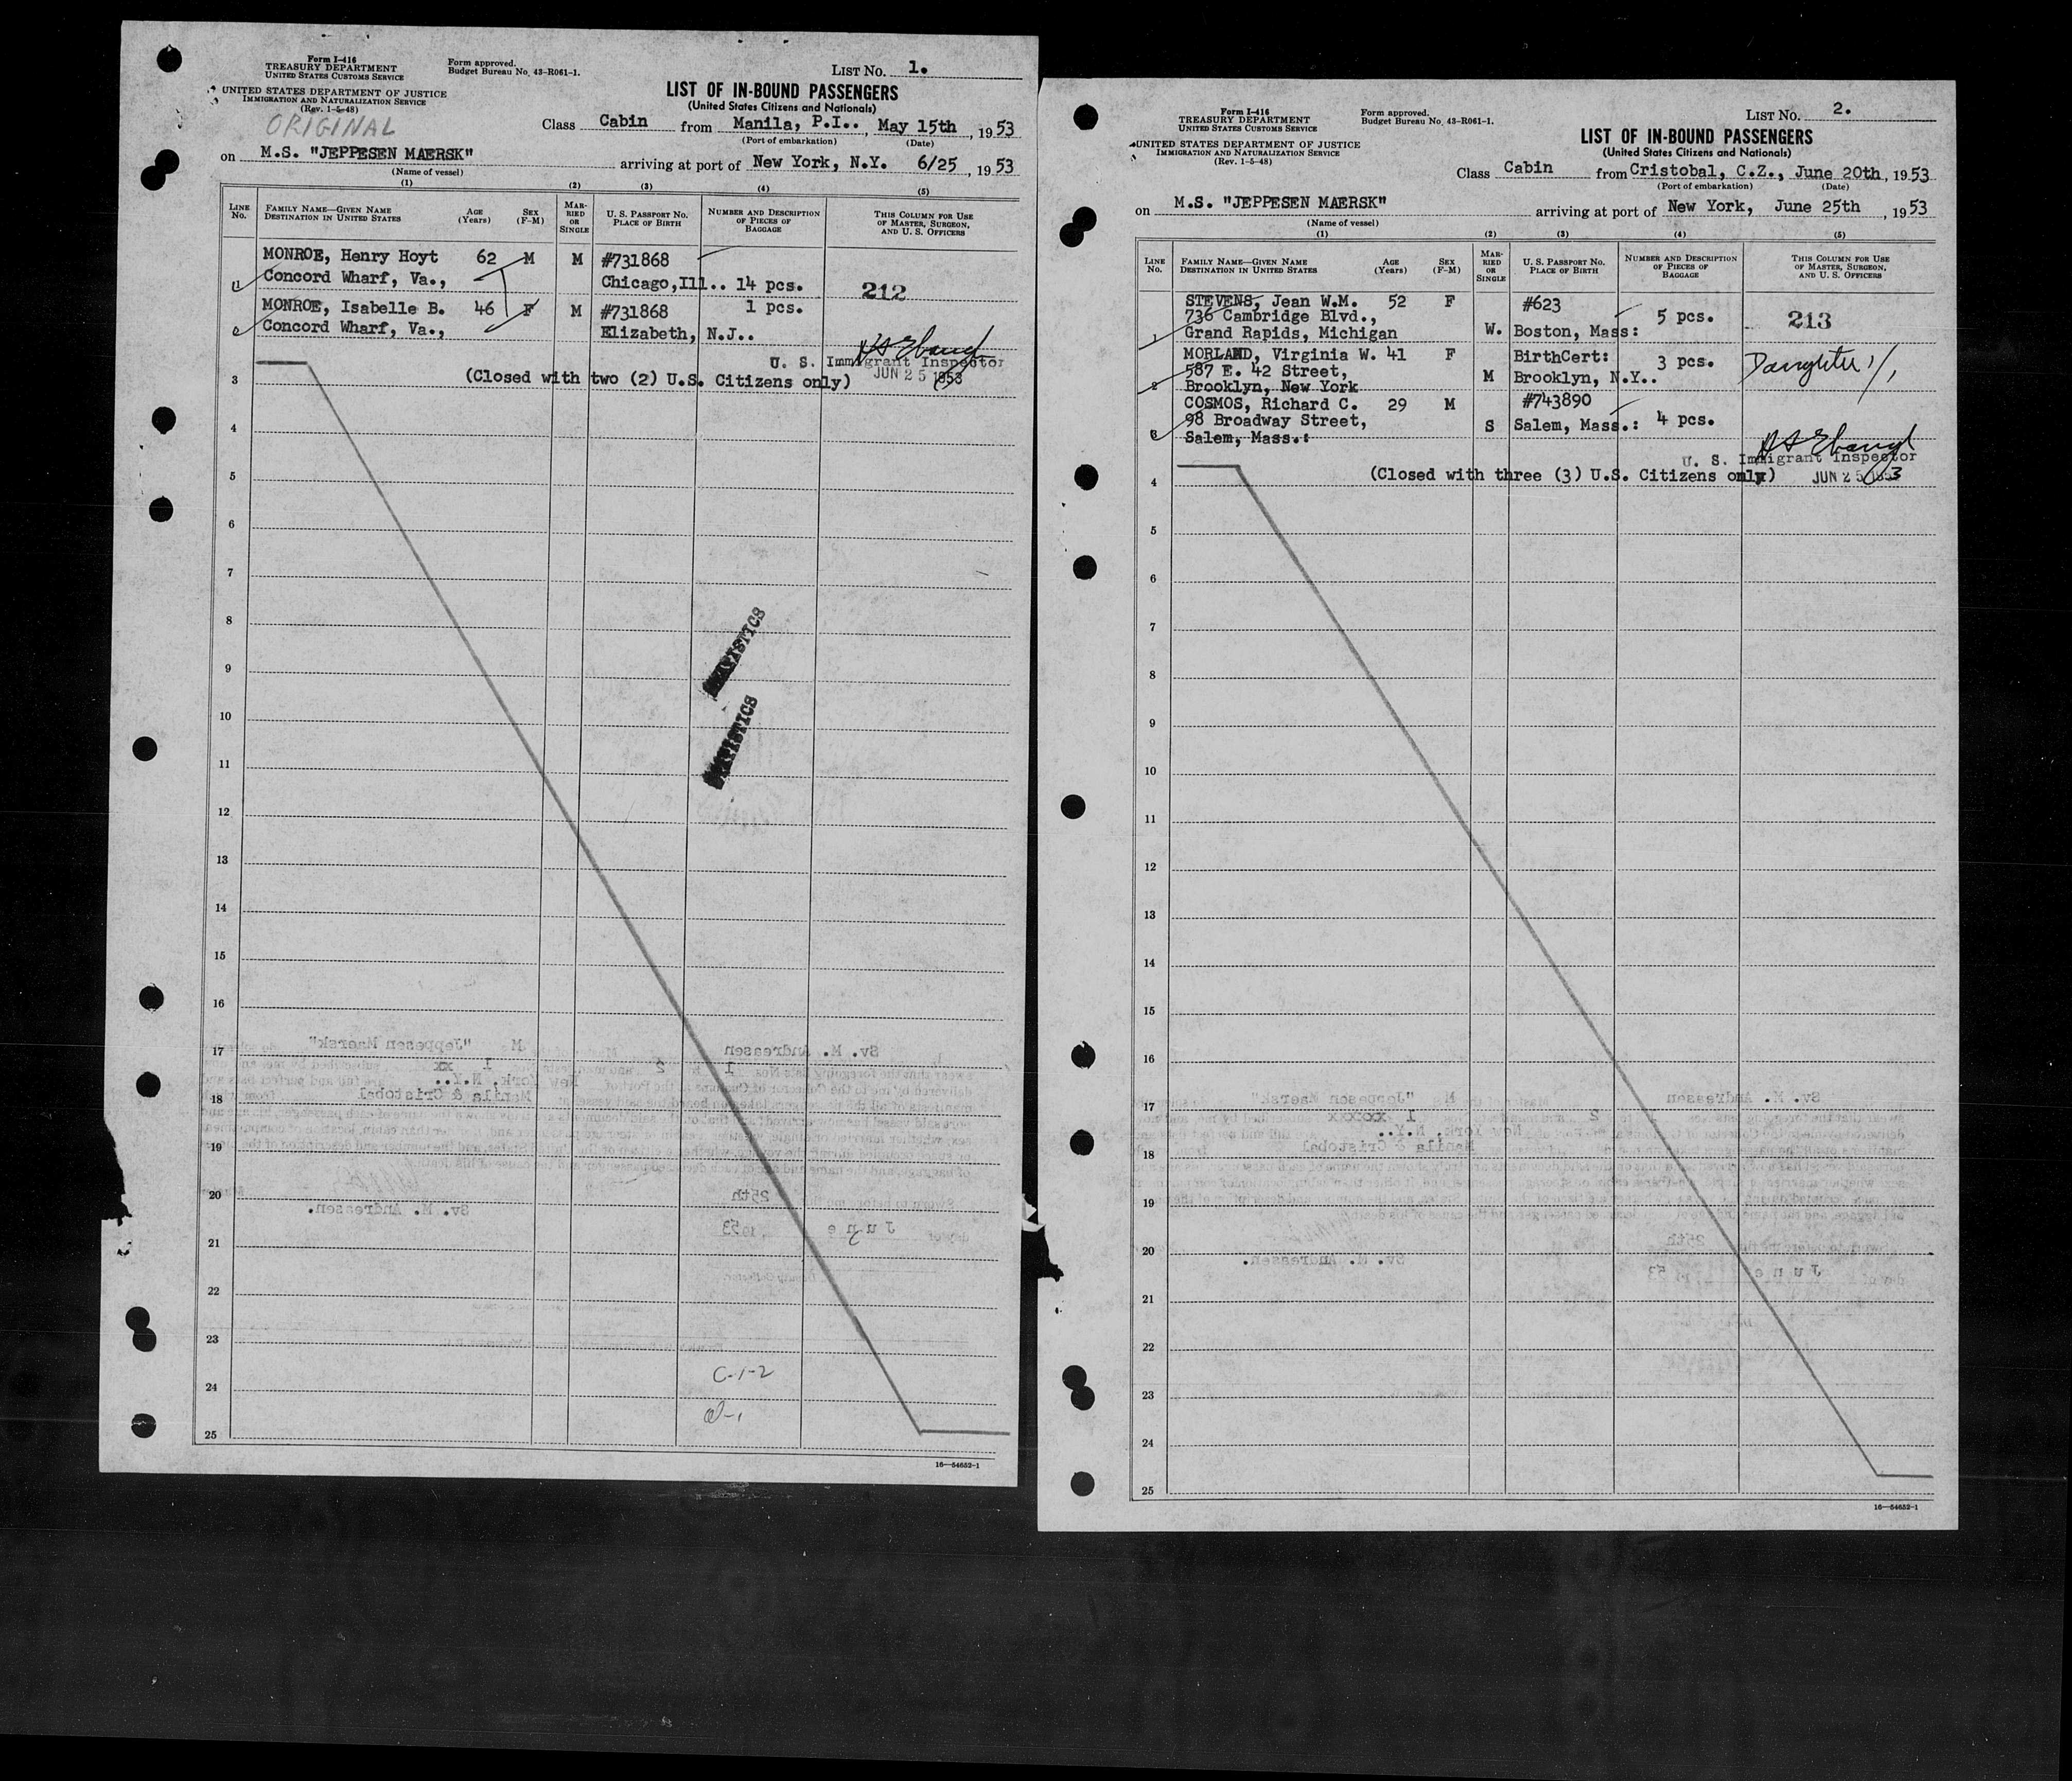 Form I-416
TREASURY DEPARTMENT
UNITED STATES CUSTOMS SERVICE
UNITED STATES DEPARTMENT OF JUSTICE
IMMIGRATION AND NATURALIZATION SERVICE
(Rev. 1-5-48)
ORIGINAL
Form approved.
Budget Bureau No. 43-R061-1.
LIST NO. 1.
LIST OF IN-BOUND PASSENGERS
(United States Citizens and Nationals)
Class Cabin from Manila, P.I.., May 15th, 1953
(Port of embarkation) (Date)
on M.S. "JEPPESEN MAERSK" arriving at port of New York, N.Y. 6/25, 1953
(Name of vessel)
(1) (2) (3) (4) (5)
LINE No. FAMILY NAME—GIVEN NAME DESTINATION IN UNITED STATES AGE (Years) SEX (F-M) MARRIED OR SINGLE U. S. PASSPORT NO. PLACE OF BIRTH NUMBER AND DESCRIPTION OF PIECES OF BAGGAGE THIS COLUMN FOR USE OF MASTER, SURGEON, AND U. S. OFFICERS
MONROE, Henry Hoyt 62 M M #731868
1 Concord Wharf, Va., Chicago,Ill.. 14 pcs. 212
MONROE, Isabelle B. 46 F M #731868 1 pcs.
2 Concord Wharf, Va., Elizabeth, N.J..
U. S. Immigrant Inspector
3 (Closed with two (2) U.S. Citizens only) JUN 25 1953
4
5
6
7
8
STATISTICS
9
10
STATISTICS
11
12
13
14
15
16
17
18
19
20
21
22
23
C-1-2
24
25
16—54652-1
Form I-416
TREASURY DEPARTMENT
UNITED STATES CUSTOMS SERVICE
UNITED STATES DEPARTMENT OF JUSTICE
IMMIGRATION AND NATURALIZATION SERVICE
(Rev. 1-5-48)
Form approved.
Budget Bureau No. 43-R061-1.
LIST NO. 2.
LIST OF IN-BOUND PASSENGERS
(United States Citizens and Nationals)
Class Cabin from Cristobal, C.Z., June 20th, 1953
(Port of embarkation) (Date)
on M.S. "JEPPESEN MAERSK" arriving at port of New York, June 25th, 1953
(Name of vessel)
(1) (2) (3) (4) (5)
LINE No. FAMILY NAME—GIVEN NAME DESTINATION IN UNITED STATES AGE (Years) SEX (F-M) MARRIED OR SINGLE U. S. PASSPORT NO. PLACE OF BIRTH NUMBER AND DESCRIPTION OF PIECES OF BAGGAGE THIS COLUMN FOR USE OF MASTER, SURGEON, AND U. S. OFFICERS
STEVENS, Jean W.M. 52 F #623
736 Cambridge Blvd., 5 pcs. 213
1 Grand Rapids, Michigan W. Boston, Mass:
MORLAND, Virginia W. 41 F BirthCert: 3 pcs. Daughter 1/1
587 E. 42 Street,
2 Brooklyn, New York M Brooklyn, N.Y..
COSMOS, Richard C. 29 M #743890
98 Broadway Street, 4 pcs.
3 Salem, Mass.: S Salem, Mass.:
U. S. Immigrant Inspector
4 (Closed with three (3) U.S. Citizens only) JUN 25 1953
5
6
7
8
9
10
11
12
13
14
15
16
17
18
19
20
21
22
23
24
25
16—54652-1